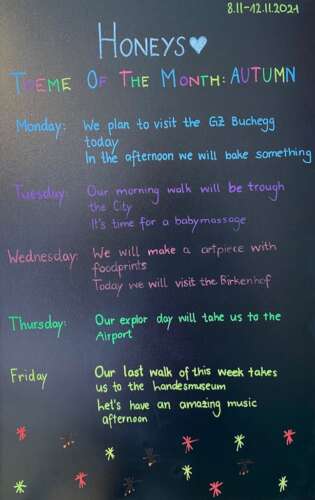 8.11-12.11.2021
HONEYS
THEME OF THE MONTH: AUTUMN
Monday: We plan to visit the GZ Buchegg
today
In the afternoon we will bake something
Tuesday: Our morning walk will be trough
the City
It's time for a babymassage
Wednesday: We will make a artpiece with
foodprints
Today we will visit the Birkenhof
Thursday: Our explor day will take us to the
Airport
Friday Our last walk of this week takes
us to the landesmuseum
Let's have an amazing music
afternoon